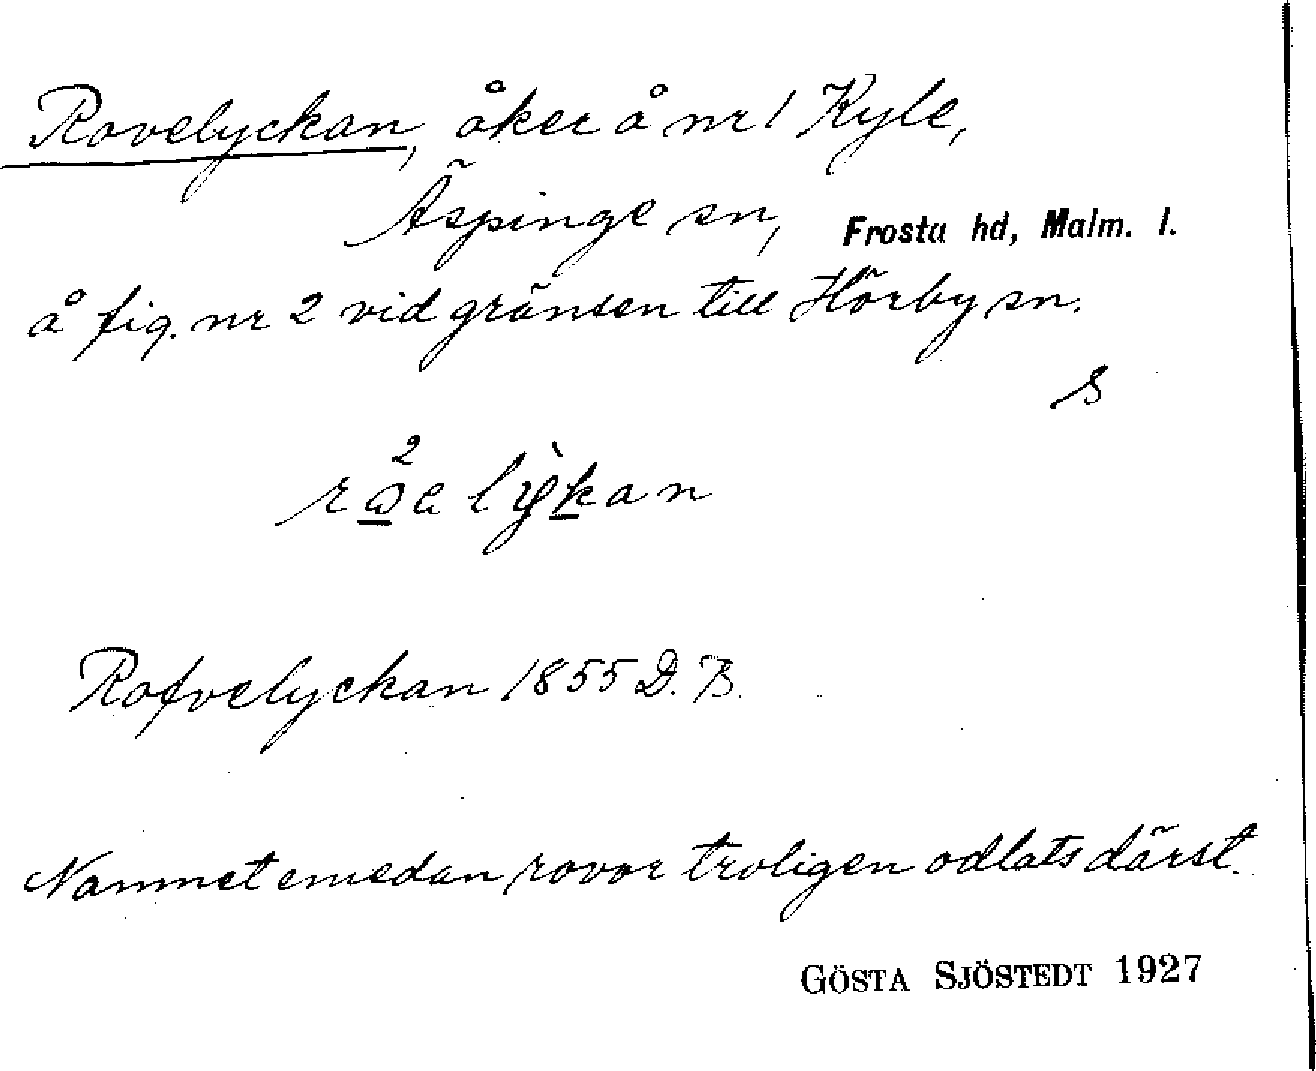 Rovelyckan, åker å nr 1 Kyle,
Äspinge sn, Frosta hd, Malm. l.
å fig. nr 2 vid gränsen till Hörby sn.
S
Rofvelyckan 1855 D. B.
Namnet emedan rovor troligen odlats därst.
GÖSTA SJÖSTEDT 1927